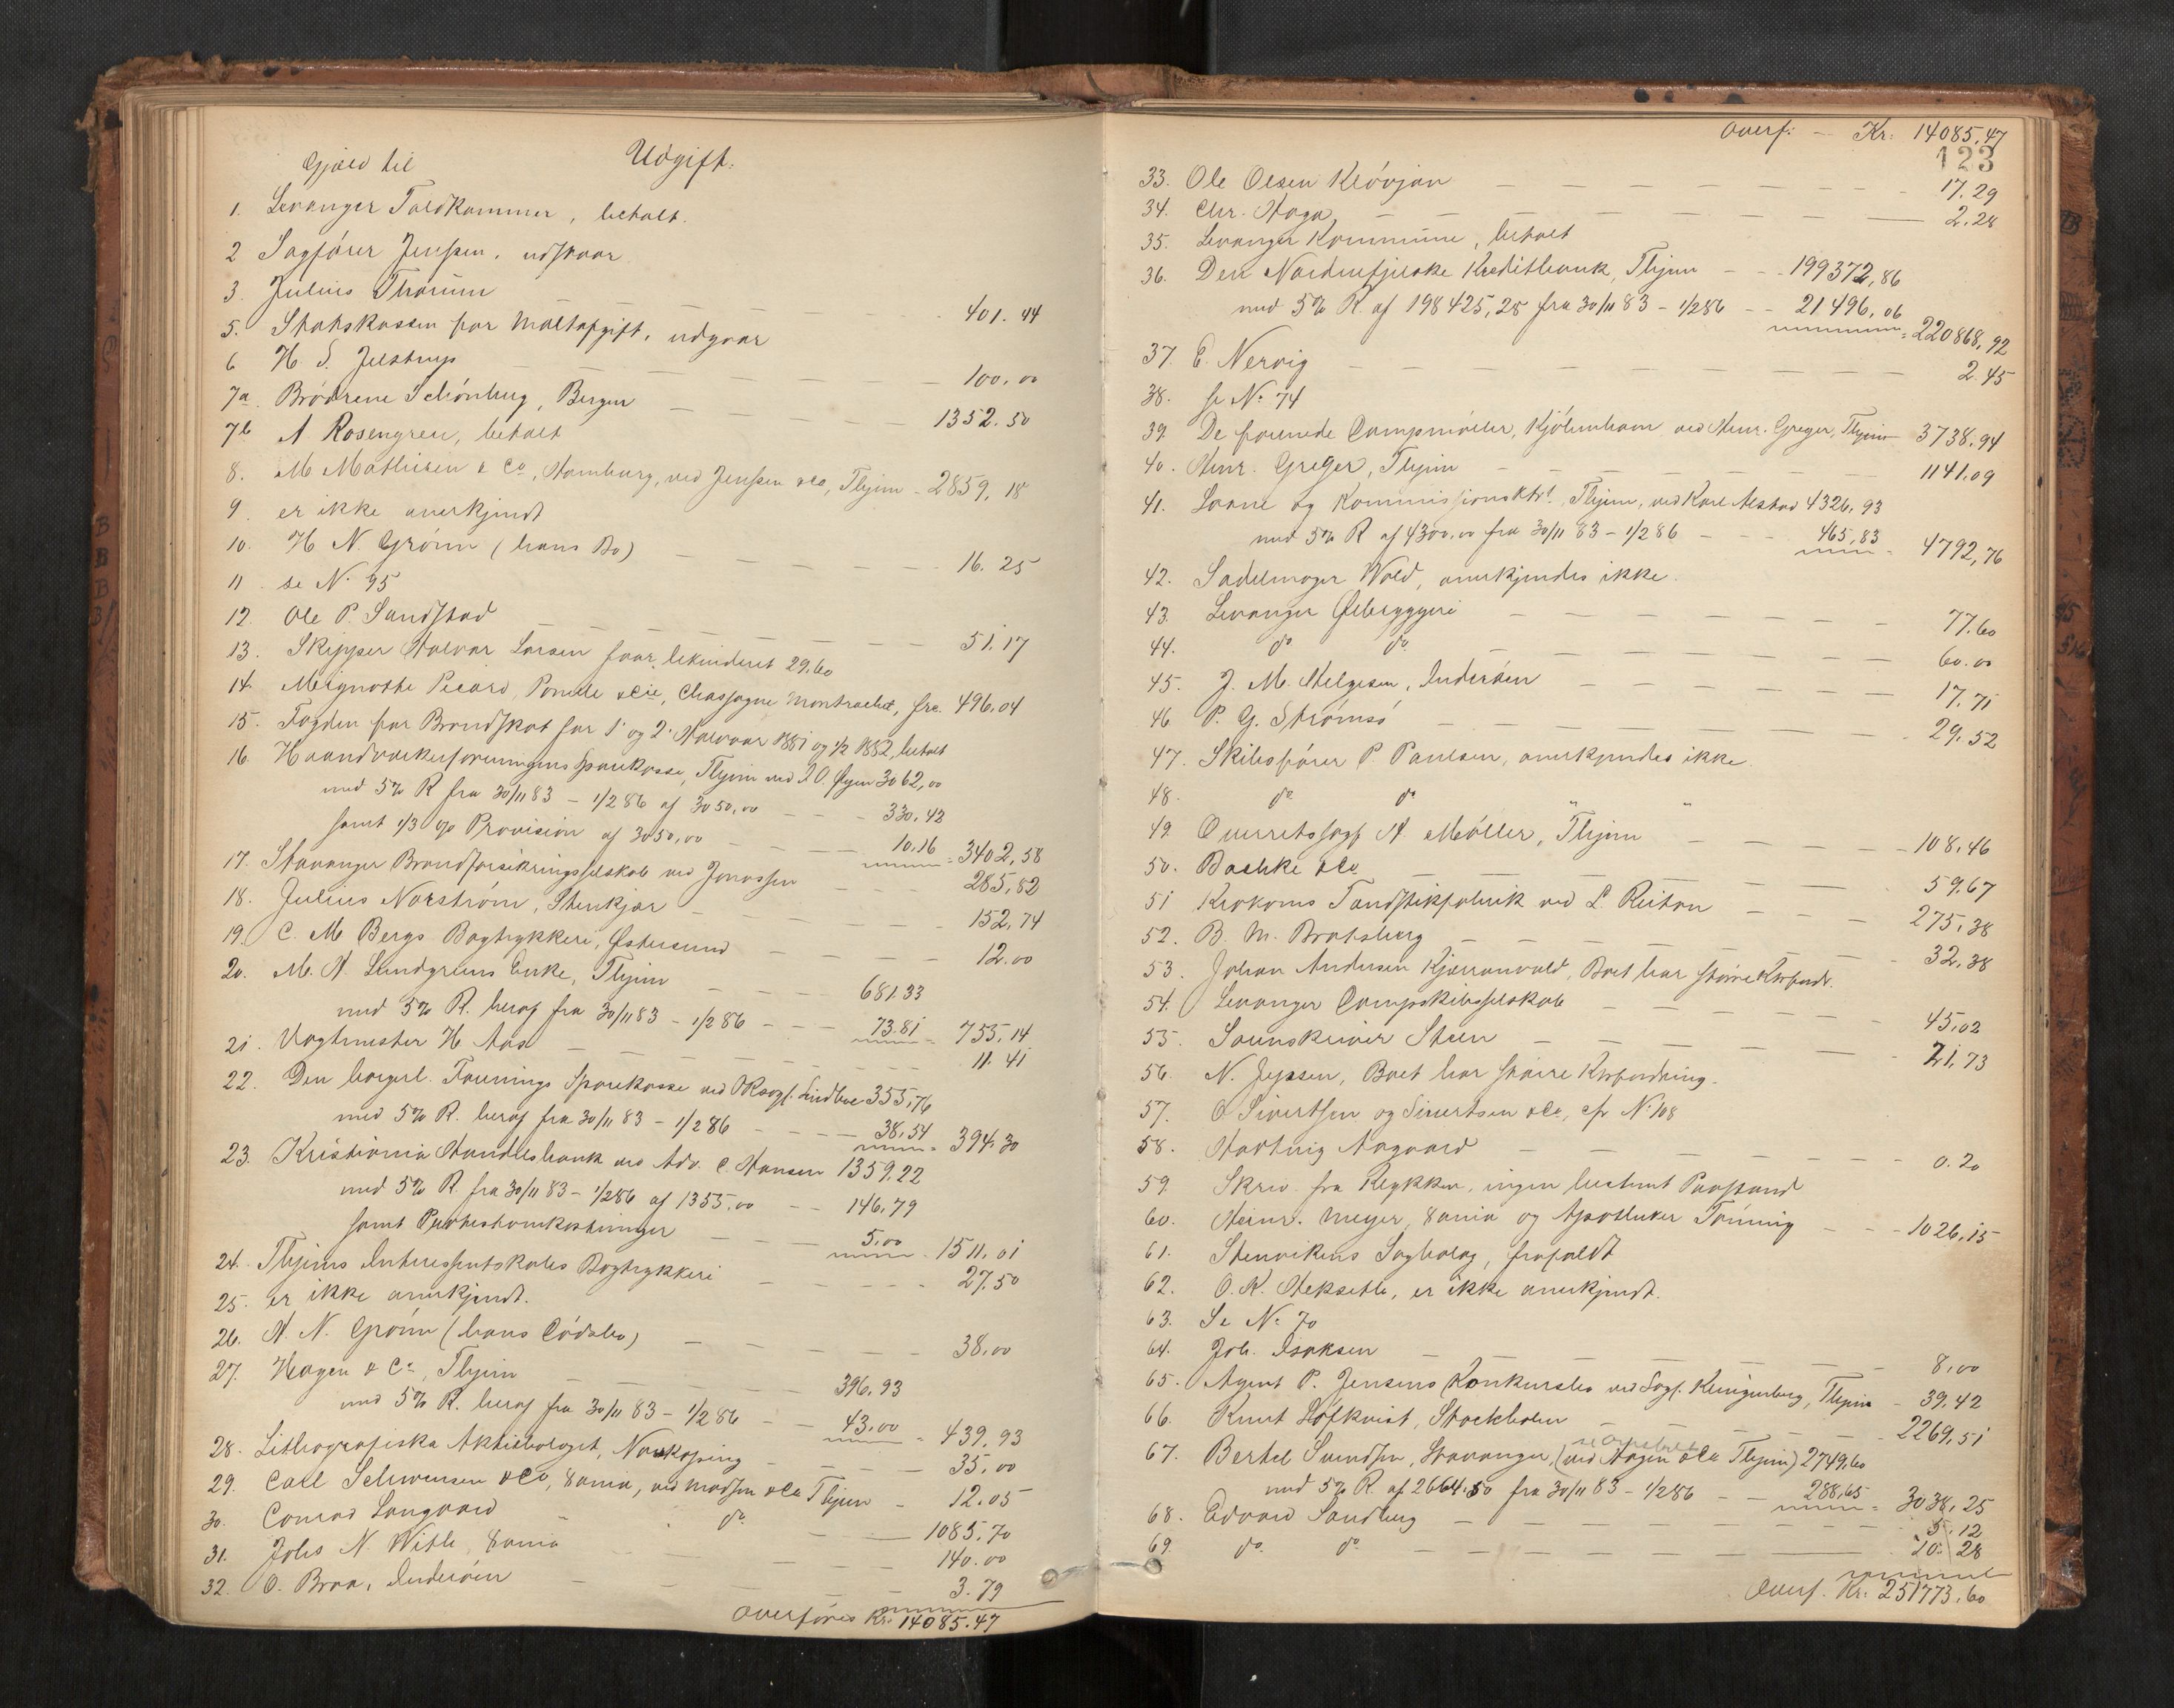 Udgift.
Gjæld til
1. Levanger Toldkammer, betalt.
2 Sagfører Jenssen, udgaar
3. Julius Thorum — — — 401.44
5. Statskassen for Maltafgift, udgaar
6 H S. Jelstrup — — — 100.00
7a. Brødrene Schönberg, Bergen — — — 1352.50
7b A Rosengren, betalt
8. M Mathisen & Co, Hamburg, ved Jenssen & Co, Thjem - 2859,18
9. er ikke anerkjendt
10. H N. Grønn (hans Bo) — — — 16.25
11. se No 95
12. Ole P. Sandstad — — — 51.17
13. Skipper Halvar Larsen faar 29.60
14. Mignotte Picard, Ponelle & Cie, Chassagne Montrachet, frc. 496.04
15. Fogden for Brandskat for 1' og 2' Halvaar 1881 og 1/2 1882, betalt
16. Haandværkerforeningens Sparekasse, Thjem ved I O Øyen 3062,00
med 5% R fra 30/11 83 – 1/2 86 af 3050,00 — — 330.42
samt 1/3 % Provision af 3050,00 — — 10.16 = 3402,58
17. Stavanger Brandforsikringsselskab ved Jonassen — — 285,82
18. Julius Norstrøm, Stenkjær — — — 152,74
19. C. M Bergs Bogtrykkeri, Østersund — — — 12.00
20. M. A. Lundgreens Enke, Thjem — — — 681.33
med 5% R. heraf fra 30/11 83 – 1/2 86 — — 73.81 = 755.14
21. Vagtmester H Aas — — — 11.41
22. Den borgerl. Forenings Sparekasse ved OKsagf. Lindboe 355,76
med 5% R. heraf fra 30/11 83 – 1/2 86 — — 38,54 = 394.30
23. Kristiania Handelsbank ved Adv. C. Hansen 1359.22
med 5% R. fra 30/11 83 – 1/2 86 af 1355.00 — — 146,79
samt Protestomkostninger — — 5.00 = 1511.01
24. Thjems Interessentskabs Bogtrykkeri — — — 27.50
25. er ikke anerkjendt.
26. H. N. Grønn (hans Dødsbo) — — — 38.00
27. Hagen & Co, Thjem — — — 396,93
med 5% R. heraf fra 30/11 83 – 1/2 86 — — 43.00 = 439,93
28. Lithografiska Aktiebolaget, Norrköping — — — 35,00
29. Carl Schwensen & Co, 8ania, ved Madsen & Co Thjem - 12.05
30. Conrad Langaard " do — — 1085.70
31. Johs N. Withs, 8ania — — — 140.00
32. O. Braa, Inderøen — — — 3.79
Overføres Kr. 14085.47
Overf: — Kr: 14085.47
123
33. Ole Olsen Kløvjan — — — 17.29
34. Chr. Haga — — — 2.28
35. Levanger Kommune, betalt
36. Den Nordenfjelske Kreditbank, Thjem — — 199372,86
med 5% R. af 198425,28 fra 30/11 83 – 1/2 86 — — 21496,06 = 220868,92
37. E. Nervig — — — 2.45
38. se No 74
39. De forenede Dampmøller, Kjøbenhavn ved Henr. Greger, Thjem 3738.94
40. Henr. Greger, Thjem — — — 1141.09
41. Laane og Kommissionsktr., Thjem, ved Karl Alstad 4326,93
med 5% R af 4300.00 fra 30/11 83 – 1/2 86 — — 465,83 = 4792,76
42. Sadelmager Wold, anerkjendes ikke.
43. Levanger Ølbryggeri — — — 77.60
44. do do — — — 60.00
45. J. M. Helgesen, Inderøen — — — 17.71
46. P. G. Strømsø — — — 29.52
47. Skibsfører P. Paulsen, anerkjendes ikke.
48. do do " "
49. Overretssagf H. Møller, Thjem — — 108,46
50. Bachke & Co — — — 59.67
51 Krokoms Tændstikfabrik ved L. Reitan — — — 275,38
52. B. M. Bratsberg — — — 32,38
53. Johan Andersen Kjærranvald, Boet har større Ktrfordr.
54. Levanger Dampskibsselskab — — — 45,02
55. Sorenskriver Steen — — — 21,73
56. N. Jepsen, Boet har større Ktrfordring.
57. O Sivertsen og Sivertsen & Co, cfr No 108
58. Hartvig Aagaard — — — 0.20
59. Skrev. fra Røykken, ingen bestemt Paastand
60. Heinr. Meyer, 8ania og Apotheker Tønning — — 1026,15
61. Stenvikens Sagbolag, frafaldt
62. O. K. Heksette, er ikke anerkjendt.
63. Se No 70
64. Joh. Isaksen — — — 8,00
65. Agent P. Jensens Konkursbo ved Sagf. Klingenberg, Thjem - 39.42
66. Knut Löfkvist, Stockholm — — — 2269,51
67. Bertel Svendsen, Stavanger, (ved Hagen & Co Thjem) 2749,60
med 5% R. af 2664.50 fra 30/11 83 – 1/2 86 — — 288,65 = 3038,25
68. Edvard Sandberg — — — 5.12
69. do do — — — 20.28
Overf. Kr: 251773.60